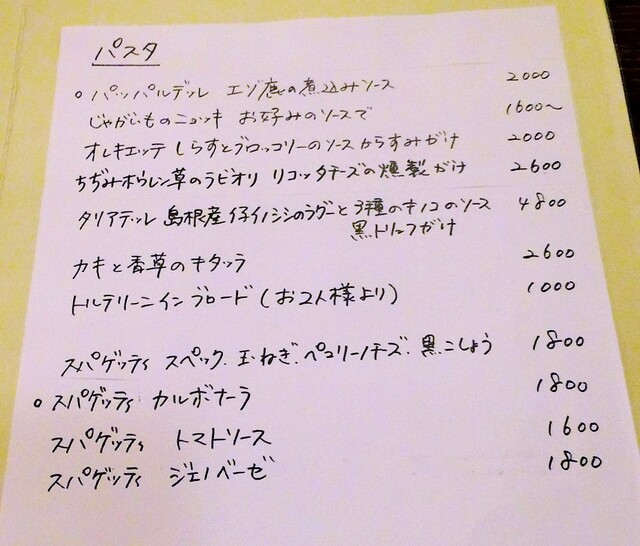 パスタ
○ パッパルデッレ エゾ鹿の煮込みソース 2000
じゃがいものニョッキ お好みのソースで 1600〜
オレキエッテ しらすとブロッコリーのソース からすみがけ 2000
ちぢみホウレン草のラビオリ リコッタチーズの燻製がけ 2600
タリアテッレ 島根産仔イノシシのラグーと3種のキノコのソース 4800
黒トリュフがけ
カキと香草のキタッラ 2600
トルテリーンインブロード(お2人様より) 1000
スパゲッティ スペック、玉ねぎ、ペコリーノチーズ、黒こしょう 1800
○ スパゲッティ カルボナーラ 1800
スパゲッティ トマトソース 1600
スパゲッティ ジェノベーゼ 1800